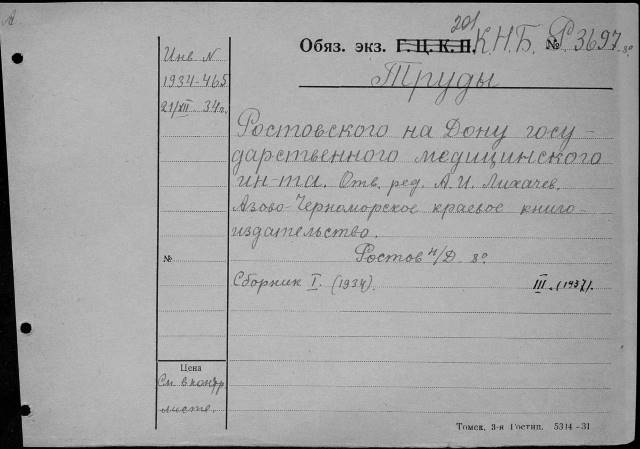 А
201
Обяз. экз. Г.Ц.К.П. К.Н.Б. № Р3697 8°
Инв N
1934-465
21/XII 34г.
Труды
Ростовского на Дону госу-
дарственного медицинского
ин-та. Отв. ред. А.И. Лихачев.
Азово-Черноморское краевое книго-
издательство.
Ростов н/Д. 8°
№
Сборник I. (1934). III. (1937).
Цена
См. в контр.
листе.
Томск, 3-я Гостип. 5314-31